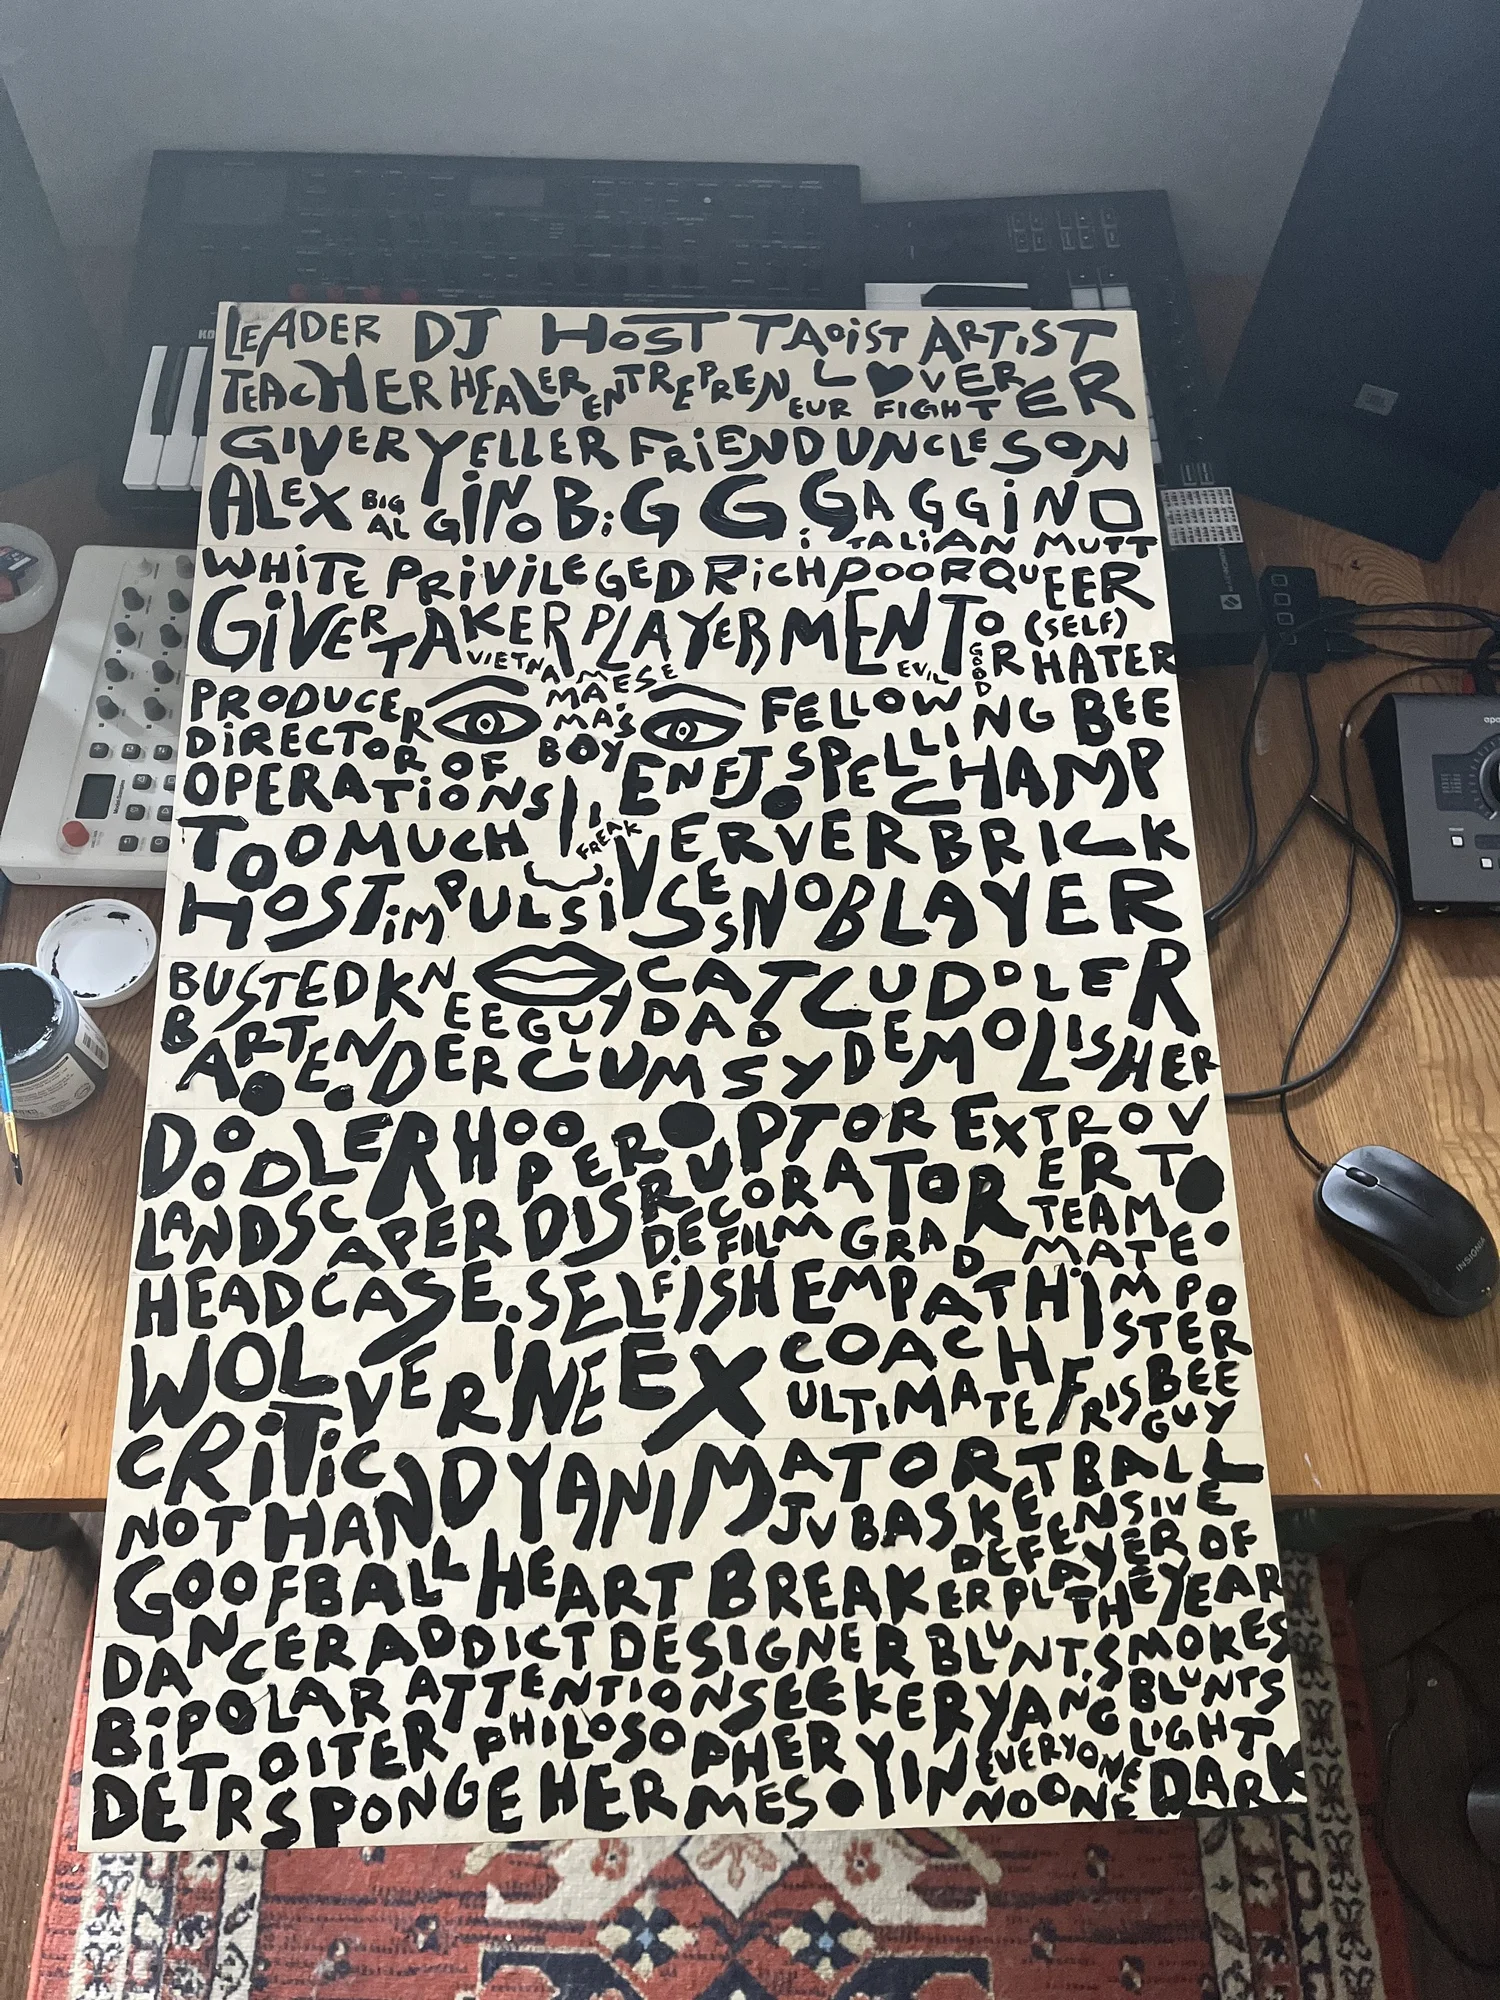 LEADER DJ HOST TAOIST ARTIST
TEACHER HEALER ENTREPREN L♥VER
EUR FIGHTER
GIVER YELLER FRIEND UNCLE SON
ALEX BIG AL GINO BIG G GAGGINO
ITALIAN MUTT
WHITE PRIVILEGED RICH POOR QUEER
GIVER TAKER PLAYER MENTOR (SELF) HATER
VIETNAMAESE EVIL GOOD
PRODUCER MAE'S FELLOW
DIRECTOR OF MA'S BOY ENFJ. SPELLING BEE
OPERATIONS CHAMP
TOO MUCH FREAK VERVER BRICK
HOST IMPULSIVE SESSNOBLAYER
BUSTED KNEE GUY CAT DAD CUDDLER
BARTENDER CLUMSY DEMOLISHER
DOODLER HOOPER DISRUPTOR EXTROVERT
LANDSCAPER DECORATOR TEAM
FILM GRAD MATE
HEADCASE. SELFISH EMPATH IMPOSTER
WOLVERINE EX COACH
ULTIMATE FRISBEE GUY
CRITIC ANIMATOR JV BASKETBALL
NOT HANDY DEFENSIVE
GOOFBALL HEARTBREAKER PLAYER OF THE YEAR
DANCER ADDICT DESIGNER BLUNT. SMOKES BLUNTS
BIPOLAR ATTENTION SEEKER YANG LIGHT
DETROITER PHILOSOPHER YIN EVERYONE DARK
SPONGE HERMES NO ONE
INSIGNIA